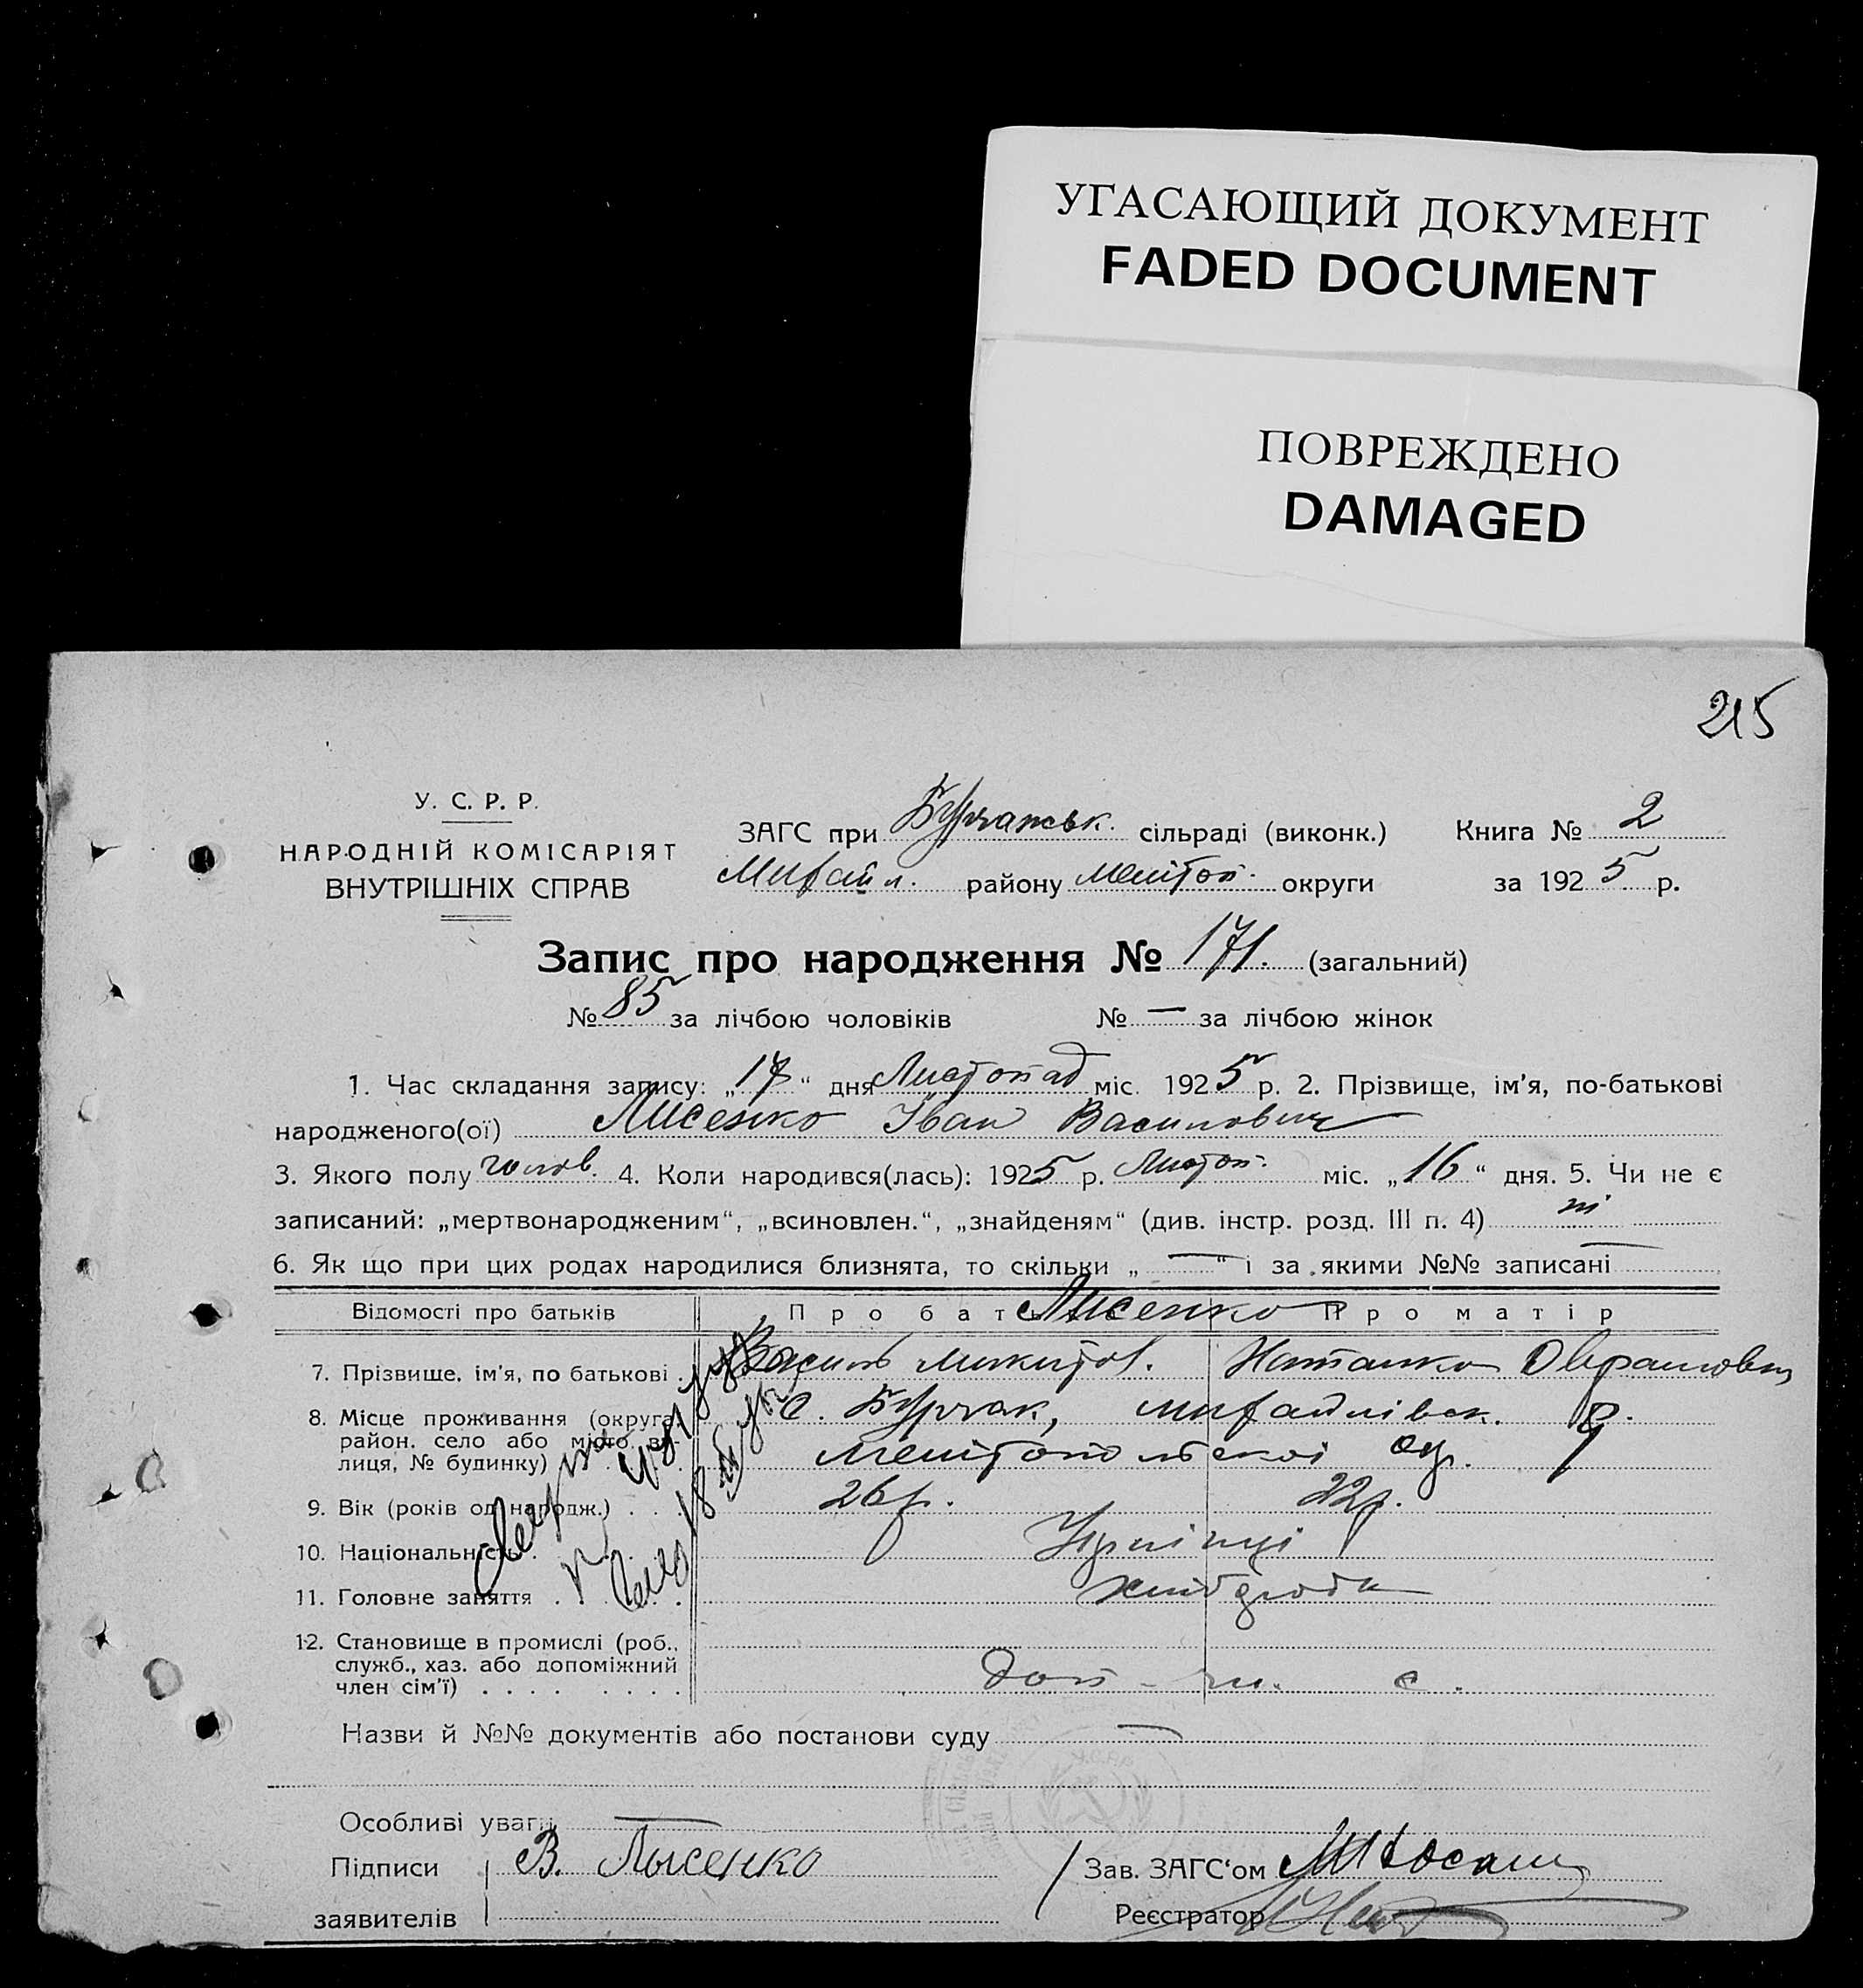 УГАСАЮЩИЙ ДОКУМЕНТ
FADED DOCUMENT
ПОВРЕЖДЕНО
DAMAGED
215
У. С. Р. Р.
НАРОДНІЙ КОМІСАРІЯТ
ВНУТРІШНІХ СПРАВ
ЗАГС при Бурчакськ. сільраді (виконк.) Книга № 2
Михайл. району Мелітоп. округи за 1925 р.
Запис про народження № 171. (загальний)
№ 85 за лічбою чоловіків № — за лічбою жінок
1. Час складання запису: „17“ дня Листопад міс. 1925 р. 2. Прізвище, ім'я, по-батькові
народженого(ої) Лисенко Іван Василович
3. Якого полу чолов. 4. Коли народився(лась): 1925 р. Листоп. міс. „16“ дня. 5. Чи не є
записаний: „мертвонародженим“, „всиновлен.“, „знайденям“ (див. інстр. розд. III п. 4) ні
6. Як що при цих родах народилися близнята, то скільки „—“ і за якими №№ записані —
Відомості про батьків Про батька Лисенко Про матір
7. Прізвище, ім'я, по батькові . Василь Микитов. Наталка
8. Місце проживання (округа, с. Бурчак, Михайлівськ. р.
район, село або місто, ву-
лиця, № будинку) Мелітопольської окр.
9. Вік (років од народж.) . . . 26 р. 22 р.
10. Національність . Українці
11. Головне заняття . . . хлібороби
12. Становище в промислі (роб.,
служб., хаз. або допоміжний
член сім'ї) . . . . . . . . . доп. ч. с.
Назви й №№ документів або постанови суду —
Особливі уваги —
Підписи В. Лысенко Зав. ЗАГС‘ом
заявителів Реєстратор